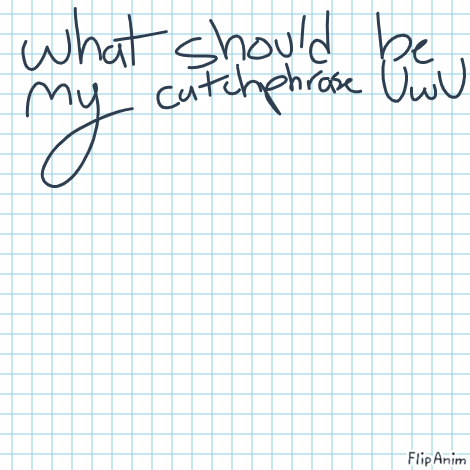 what should be
my catchphrase UwU
FlipAnim